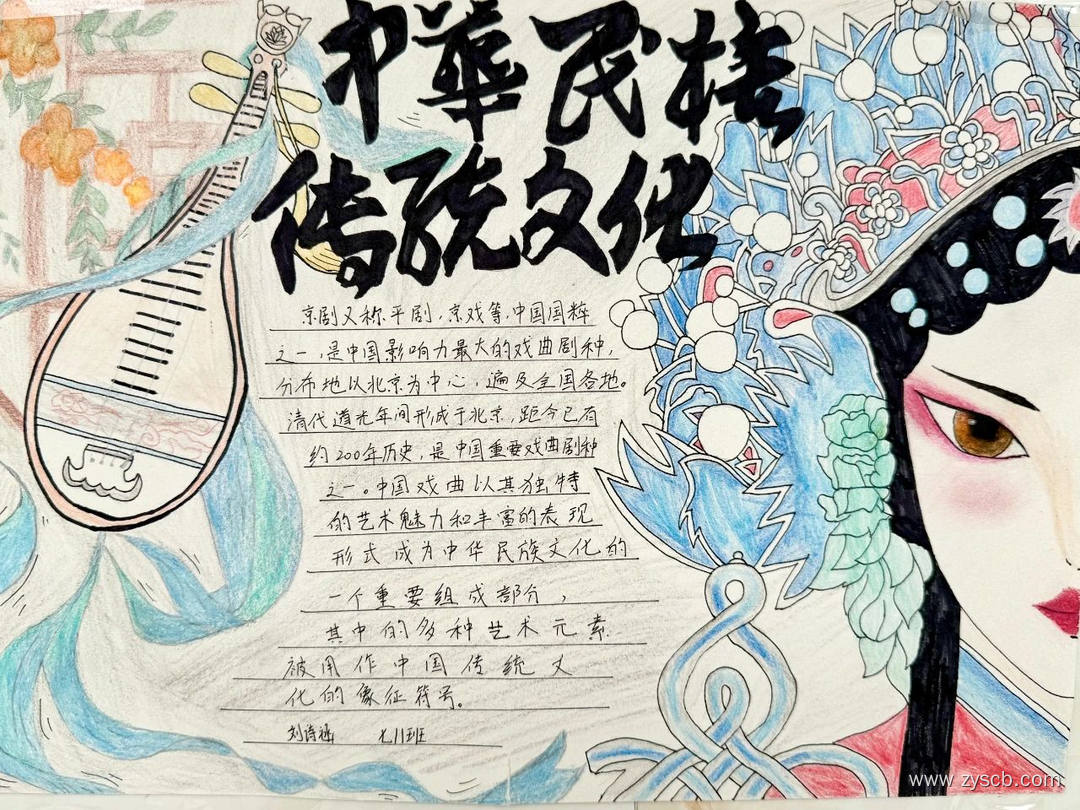 中華民族
传统文化
京剧又称平剧,京戏等,中国国粹
之一,是中国影响力最大的戏曲剧种,
分布地以北京为中心,遍及全国各地。
清代道光年间形成于北京,距今已有
约200年历史,是中国重要戏曲剧种
之一。中国戏曲以其独特
的艺术魅力和丰富的表现
形式成为中华民族文化的
一个重要组成部分,
其中的多种艺术元素
被用作中国传统文
化的象征符号。
刘诗涵 七11班
www.zyscb.com